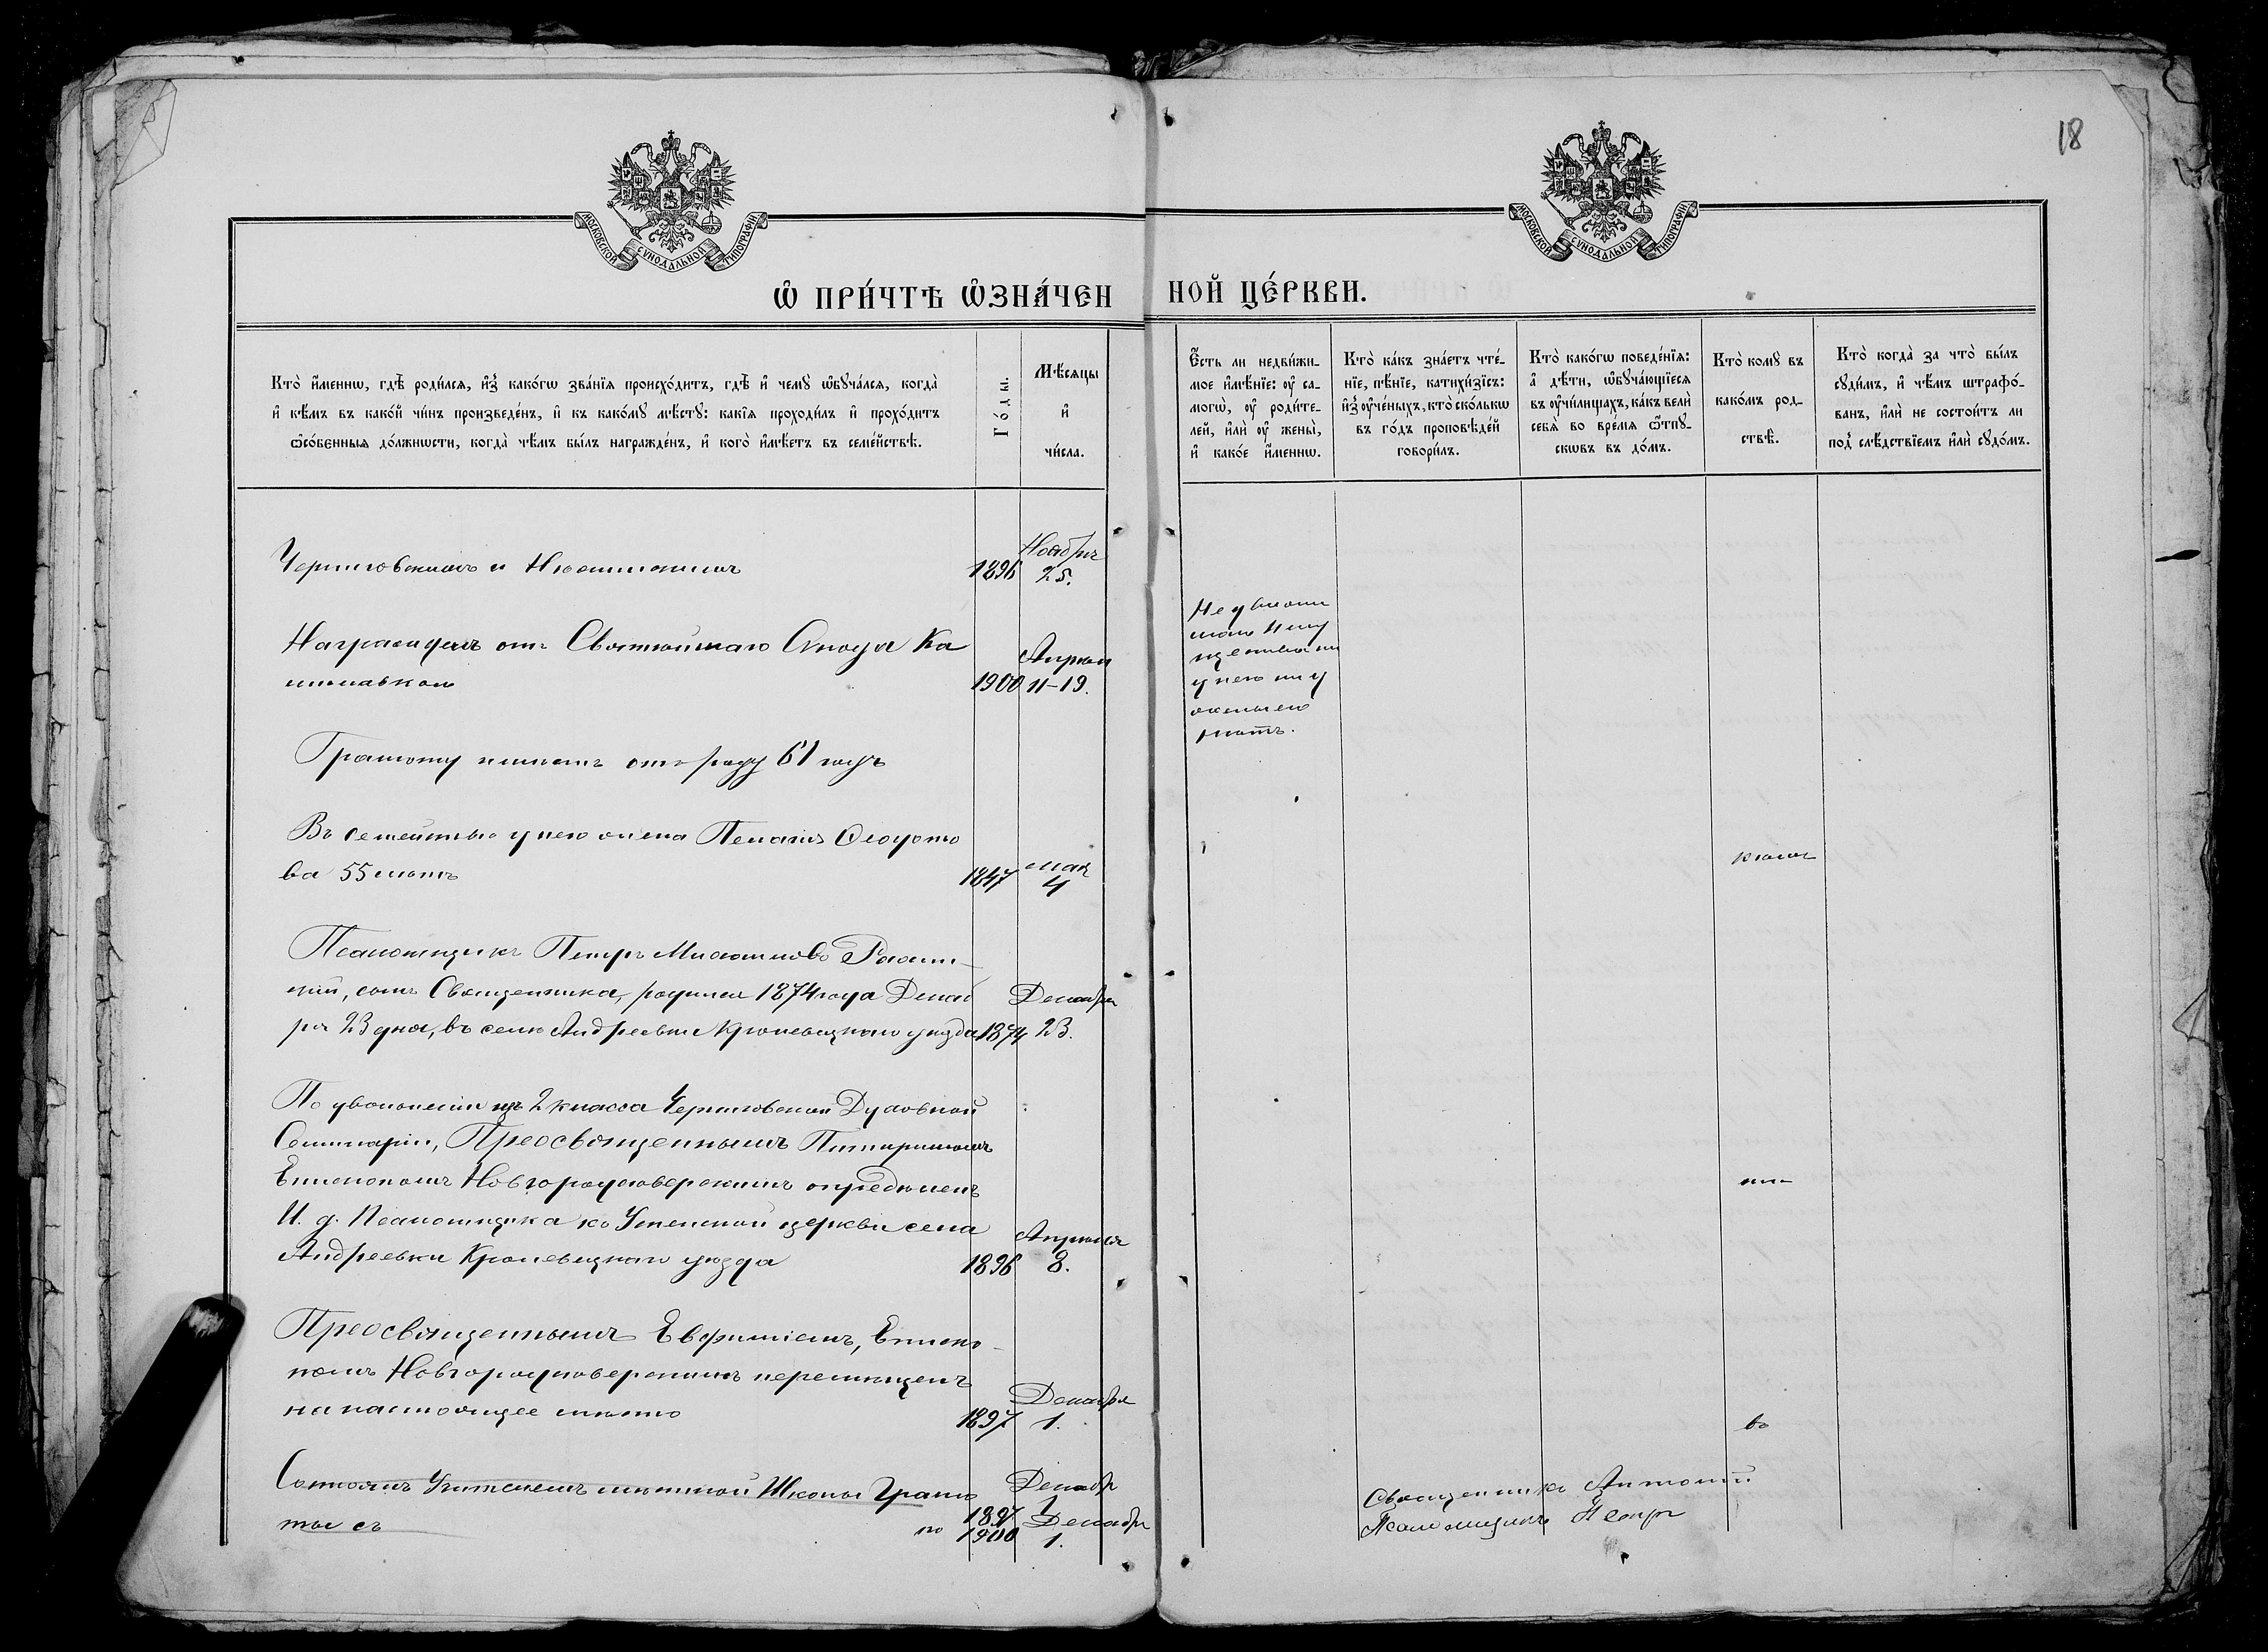 18
МОСКОВСКОЙ СѴНОДАЛЬНОЙ ТИПОГРАФІИ
МОСКОВСКОЙ СѴНОДАЛЬНОЙ ТИПОГРАФІИ
Ѡ҆ ПРИ́ЧТѢ Ѡ҆ЗНА́ЧЕННОЙ ЦЕ́РКВИ.
Кто̀ и҆́меннѡ, гдѣ̀ роди́лсѧ, и҆з̾ какѡ́гѡ зва́нїѧ происхо́дитъ, гдѣ̀ и҆ чемꙋ̀ ѡ҆бꙋча́лсѧ, когда̀
и҆ кѣ́мъ въ како́й чи́нъ произведе́нъ, и҆ къ како́мꙋ мѣ́стꙋ: какі̑ѧ проходи́лъ и҆ прохо́дитъ
ѻ҆со́бенныѧ до́лжности, когда̀ чѣ́мъ бы́лъ награжде́нъ, и҆ кого̀ и҆мѣ́етъ въ семе́йствѣ.
Го́ды.
Мѣ́сѧцы
и҆
чи́сла.
Є҆́сть ли недви́жи-
мое и҆мѣ́нїе: ᲂу҆ са-
могѡ̀, ᲂу҆ роди́те-
лей, и҆лѝ ᲂу҆ жены̀,
и҆ како́е и҆́меннѡ.
Кто̀ ка́къ зна́етъ чте́-
нїе, пѣ́нїе, катихи́зїсъ:
и҆з̾ ᲂу҆че́ныхъ, кто̀ ско́лькѡ
въ го́дъ проповѣ́дей
говори́лъ.
Кто̀ како́гѡ поведе́нїѧ:
а҆ дѣ́ти, ѡ҆бꙋча́ющїесѧ
въ ᲂу҆чи́лищахъ, ка́къ велѝ
себѧ̀ во вре́мѧ ѿпꙋ-
скѡвъ въ до́мъ.
Кто̀ комꙋ̀ въ
како́мъ род-
ствѣ̀.
Кто̀ когда̀ за что̀ бы́лъ
сꙋди́мъ, и҆ чѣ́мъ штрафо́-
ванъ, и҆лѝ не состои́тъ ли
под̾ слѣ́дствїемъ и҆лѝ сꙋдо́мъ.
Черниговскимъ и Нѣжинскимъ 1896 Ноября 25.
Награжденъ отъ Святѣйшаго Синода Ка
милавкою 1900 Апрѣля 11-19.
Грамоту имѣетъ отъ роду 61 годъ
Въ семействѣ у него жена Пелагія Ѳеодото
ва 55 лѣтъ 1847 мая 4
Псаломщикъ Петръ
скій, сынъ Священника, родился 1874 года Декаб
ря 23 дня, въ селѣ Андреевкѣ Кролевецкаго уѣзда 1874 Декабря 23.
По увольненіи изъ 2 класса Черниговской Духовной
Семинаріи, Преосвященнымъ Питиримомъ
Епископомъ Новгородсѣверскимъ опредѣленъ
И. д. Псаломщика къ Успенской церкви села
Андреевки Кролевецкаго уѣзда 1896 Апрѣля 8.
Преосвященнымъ Евфиміемъ, Еписко-
помъ Новгородсѣверскимъ перемѣщенъ
на настоящее мѣсто 1897 Декабря 1.
Состоялъ Учителемъ мѣстной Школы Грамо
ты съ 1897 Декабр 1
по 1900 Декабря 1.
Недвижи
маго Иму
щества ни
у него ни у
жены его
нѣтъ.
ни-
въ
Священникъ Антоній
Псаломщикъ Петръ